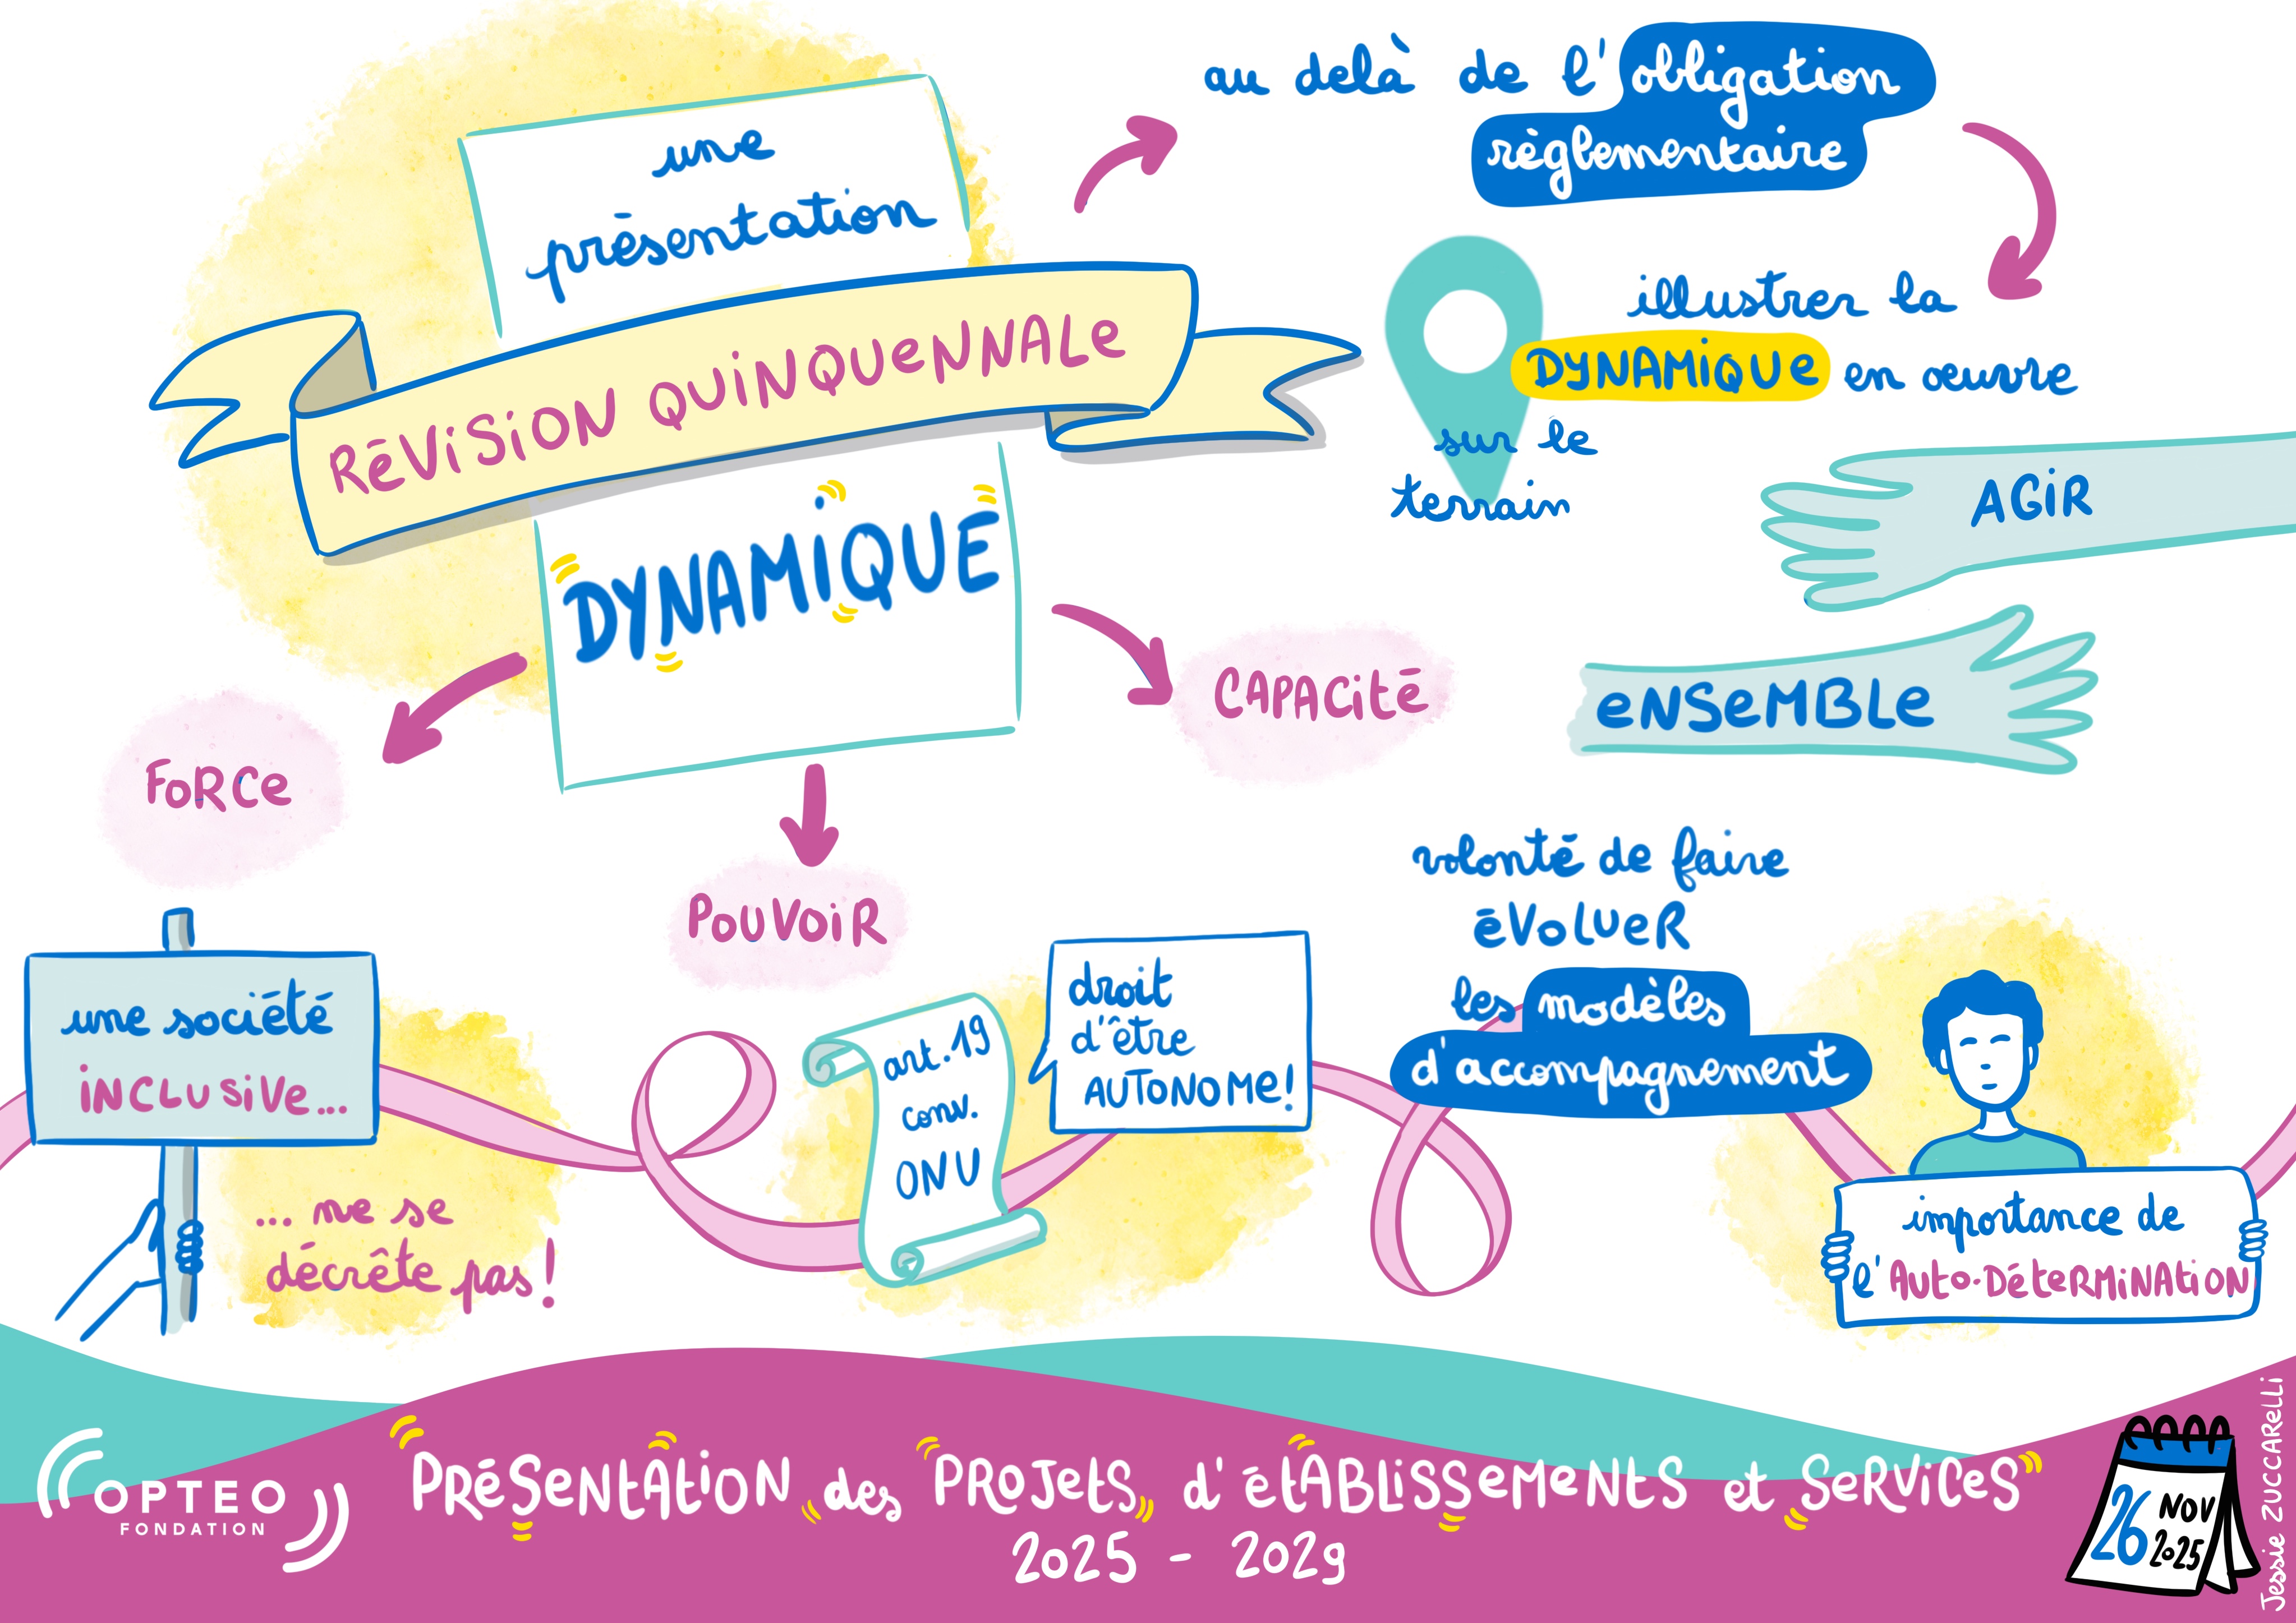 une
présentation
RÉVISION QUINQUENNALE
DYNAMIQUE
FORCE
POUVOIR
CAPACITÉ
au delà de l'obligation
règlementaire
illustrer la
DYNAMIQUE en œuvre
sur le
terrain
AGIR
ENSEMBLE
une société
INCLUSIVE...
... ne se
décrète pas !
art. 19
conv.
ONU
droit
d'être
AUTONOME !
volonté de faire
ÉVOLUER
les modèles
d'accompagnement
importance de
l'AUTO-DÉTERMINATION
OPTEO
FONDATION
PRÉSENTATION des PROJETS d'ÉTABLISSEMENTS et SERVICES
2025 - 2029
26 NOV
2025
Jessie ZUCCARELLI